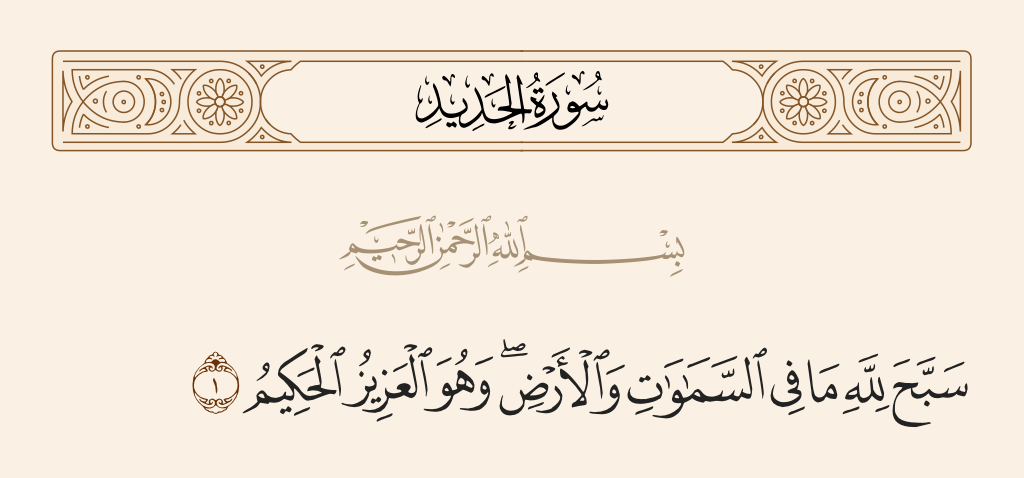 سُورَةُ الحَدِيدِ
بِسْمِ ٱللَّهِ ٱلرَّحْمَٰنِ ٱلرَّحِيمِ
سَبَّحَ لِلَّهِ مَا فِى ٱلسَّمَٰوَٰتِ وَٱلْأَرْضِ ۖ وَهُوَ ٱلْعَزِيزُ ٱلْحَكِيمُ ١